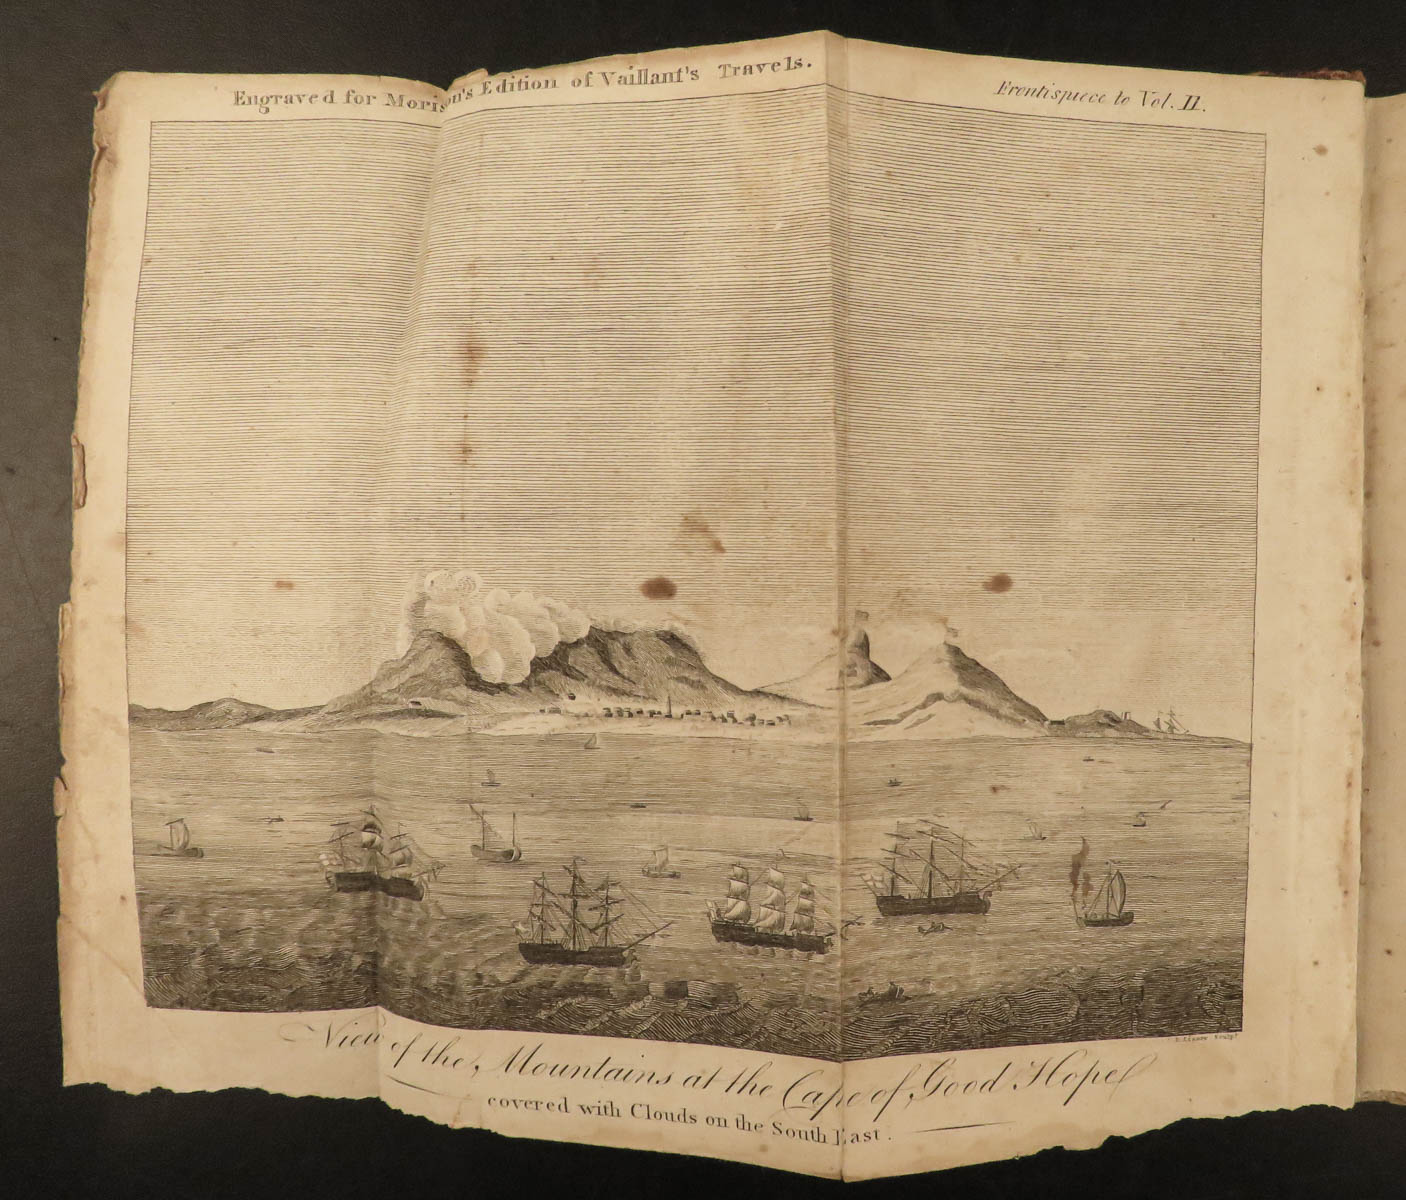 Engraved for Morison's Edition of Vaillant's Travels.
Frontispiece to Vol. II.
View of the Mountains at the Cape of Good Hope
covered with Clouds on the South East.